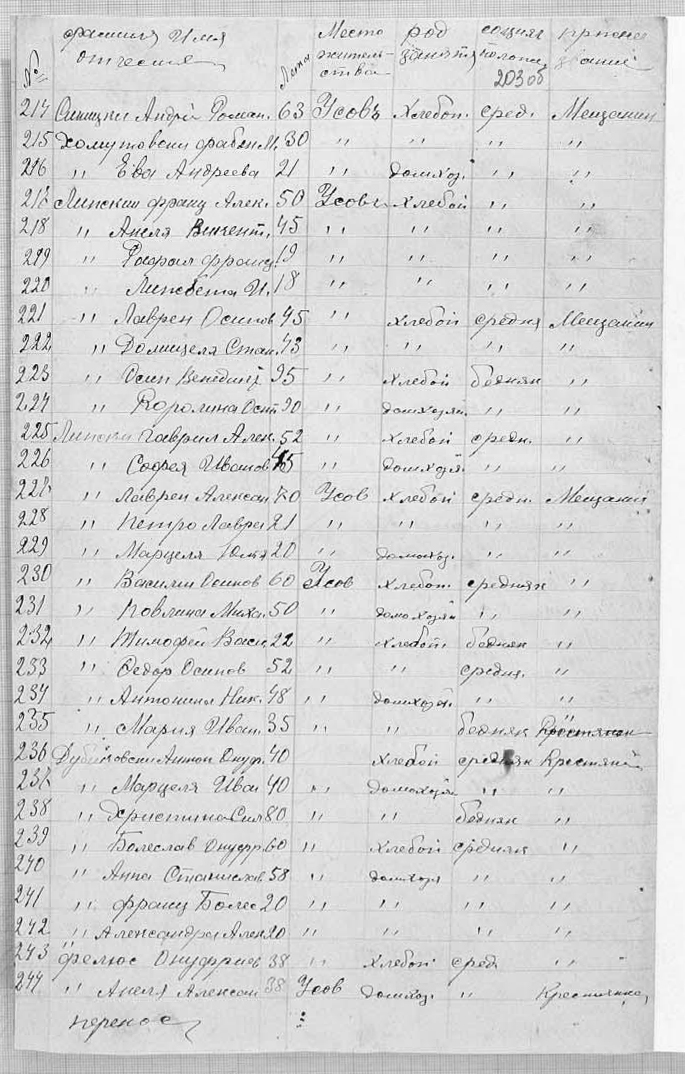 № фамилия Имя отчество Лета Место жительства род занятя социал полож. 203об прежнее звание
214 Синицки Андрей Роман. 63 Усовъ Хлебоп. сред. Мещанин
215 Хомутовски фабиян М. 30 " " " "
216 " Ева Андреева 21 " домхоз. " "
218 Липский франц Алек. 50 Усовъ Хлебой " "
218 " Анеля Викент. 45 " " " "
219 " Рафаил франц. 19 " " " "
220 " Лизбета И. 18 " " " "
221 " Лаврен Осипов 45 " хлебой средня Мещанин
222 " Домицеля Стан. 43 " " " "
223 " Осип Венедикт. 95 " хлебой бедняк "
224 " Королина Осип 90 " домхозяй. " "
225 Липски Гаврил Алек. 52 " хлебой средн. "
226 " Софея Иванов 45 " домхозя. " "
228 " Лаврен Алексан 70 Усов хлебой средн. Мещанин
228 " Петро Лаврен 21 " " " "
229 " Марцеля 20 " домохоз. " "
230 " Василий Осипов 60 Усов хлебоп. средняк "
231 " Повлина Миха. 50 " домохозяй " "
232 " Тимофей Васи. 22 " хлебоп. бедняк "
233 " Федор Осипов 52 " " средня. "
234 " Антонина Ник. 48 " домхозя. " "
235 " Мария Иван. 35 " " бедняк Крестянин
236 Дубиновски Антон Онуф. 40 хлебой средняк Крестяни
238 " Марцеля Ива 40 " домохозяй " "
238 " Христина Сил 80 " " бедняк "
239 " Болеслав Онуфр. 60 " хлебой средняк "
240 " Анна Станислав. 58 " домхозя " "
241 " франц Болес 20 " " " "
242 " Александра Алек 20 " " " "
243 фелюс Онуфриев 38 " хлебой сред. "
244 " Анеля Алексан 38 Усов домхоз. " Крестянка
перенос